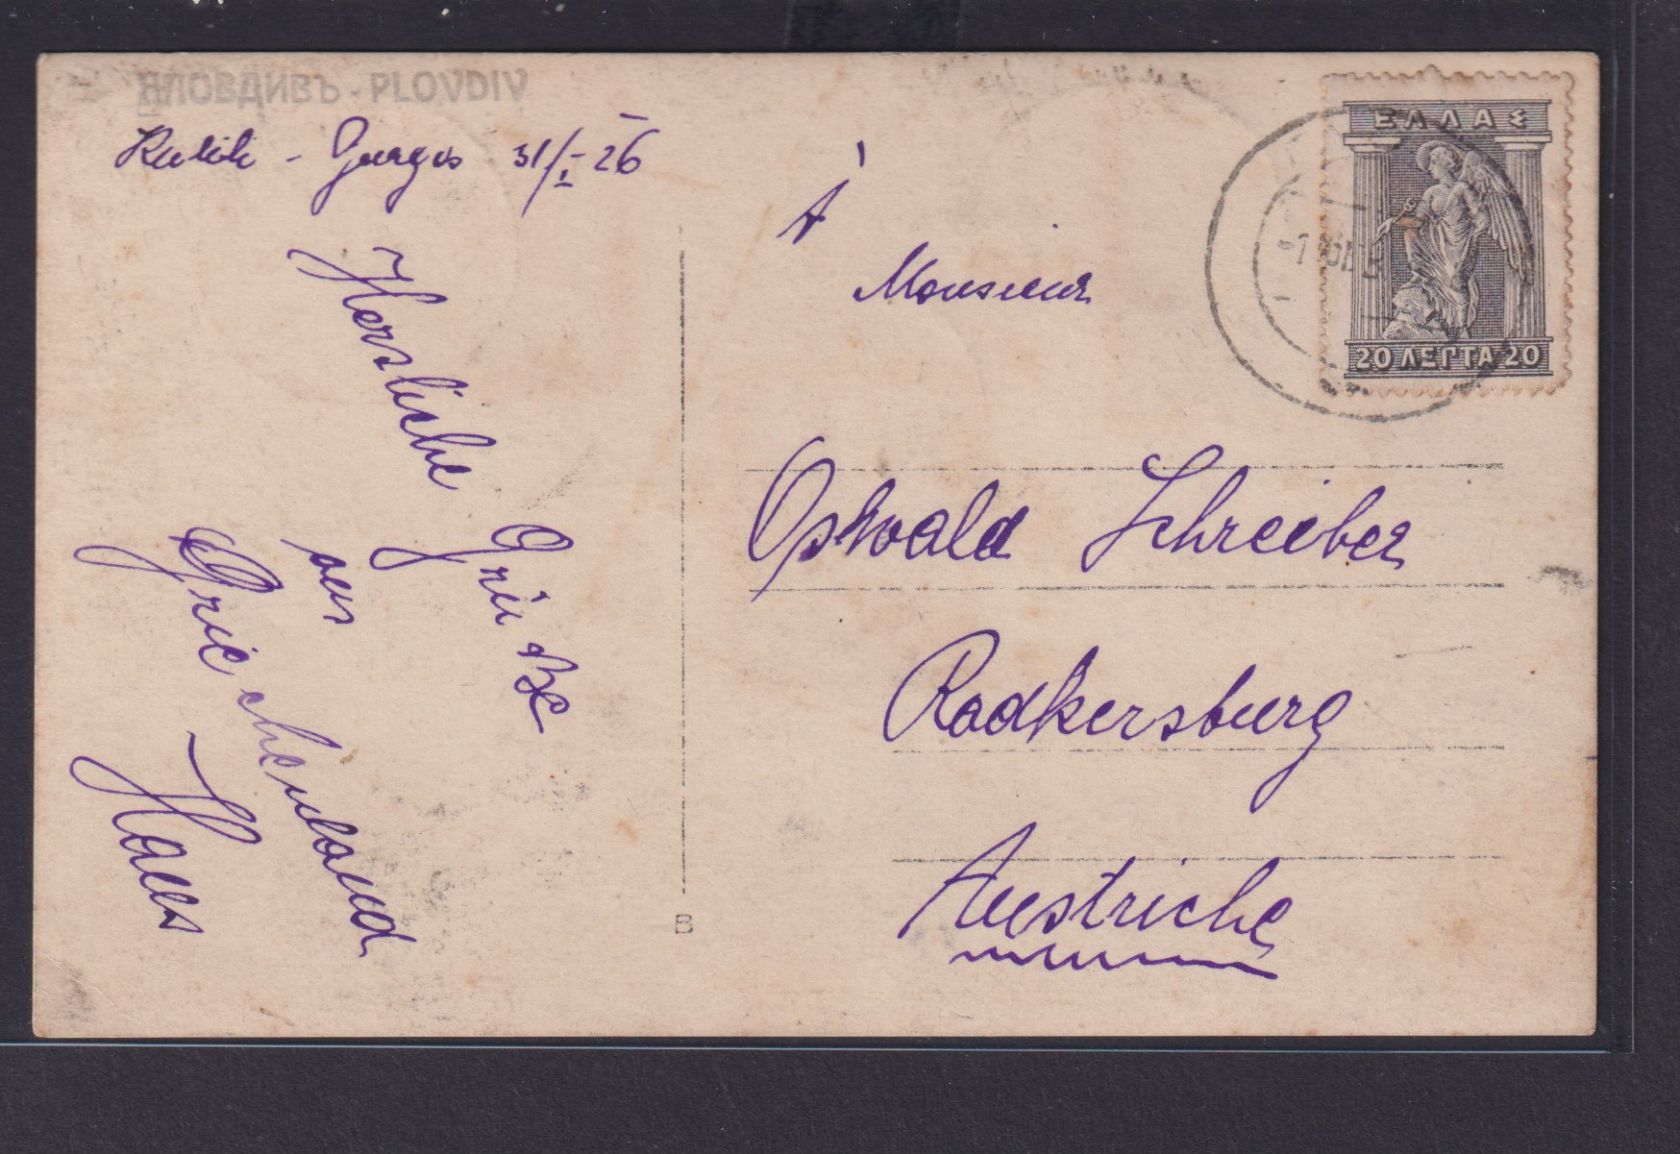 ПЛОВДИВЪ - PLOVDIV
31/I - 26
Herzliche
Grüße
aus
Griechenland
Hans
À
Monsieur
Oswald Schreiber
Radkersburg
Austriche
ΕΛΛΑΣ
20 ΛΕΠΤΑ 20
B